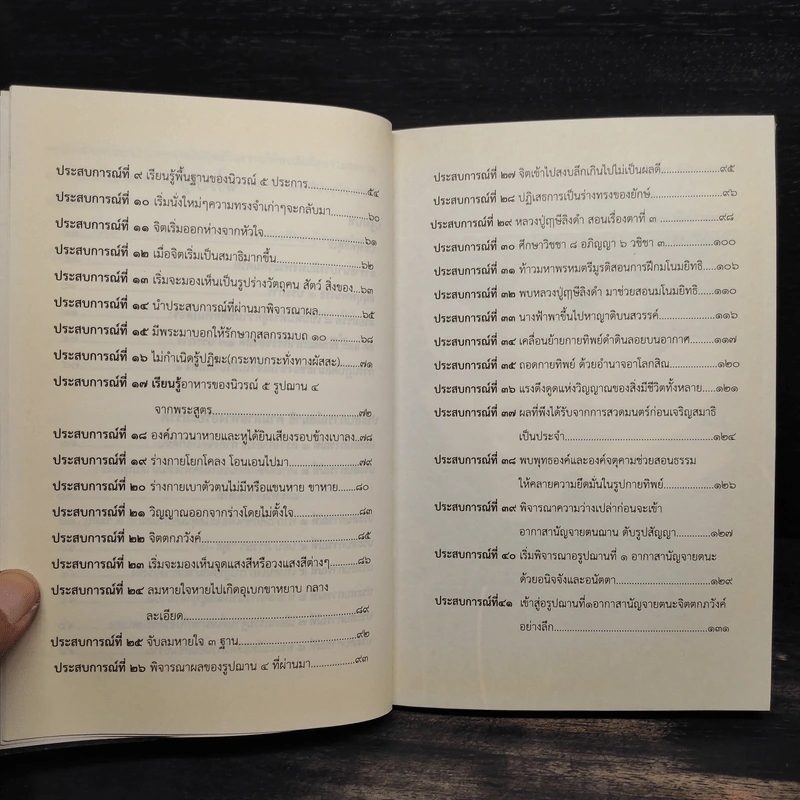 ประสบการณ์ที่ ๙ เรียนรู้พื้นฐานของนิวรณ์ ๕ ประการ....................๕๔
ประสบการณ์ที่ ๑๐ เริ่มนั่งใหม่ๆความทรงจำเก่าๆจะกลับมา..........๖๐
ประสบการณ์ที่ ๑๑ จิตเริ่มออกห่างจากหัวใจ..............................๖๑
ประสบการณ์ที่ ๑๒ เมื่อจิตเริ่มเป็นสมาธิมากขึ้น..........................๖๒
ประสบการณ์ที่ ๑๓ เริ่มจะมองเห็นเป็นรูปร่างวัตถุคน สัตว์ สิ่งของ....๖๓
ประสบการณ์ที่ ๑๔ นำประสบการณ์ที่ผ่านมาพิจารณาผล..............๖๕
ประสบการณ์ที่ ๑๕ มีพระมาบอกให้รักษากุสลกรรมบถ ๑๐ ..........๖๘
ประสบการณ์ที่ ๑๖ ไม่กำเนิดรู้ปฏิฆะ(กระทบกระทั่งทางผัสสะ)......๗๑
ประสบการณ์ที่ ๑๗ เรียนรู้อาหารของนิวรณ์ ๕ รูปฌาน ๔
จากพระสูตร..............................................๗๒
ประสบการณ์ที่ ๑๘ องค์ภาวนาหายและหูได้ยินเสียงรอบข้างเบาลง..๗๘
ประสบการณ์ที่ ๑๙ ร่างกายโยกโคลง โอนเอนไปมา....................๗๙
ประสบการณ์ที่ ๒๐ ร่างกายเบาตัวตนไม่มีหรือแขนหาย ขาหาย......๘๐
ประสบการณ์ที่ ๒๑ วิญญาณออกจากร่างโดยไม่ตั้งใจ..................๘๓
ประสบการณ์ที่ ๒๒ จิตตกภวังค์..............................................๘๕
ประสบการณ์ที่ ๒๓ เริ่มจะมองเห็นจุดแสงสีหรือวงแสงสีต่างๆ........๘๖
ประสบการณ์ที่ ๒๔ ลมหายใจหายไปเกิดอุเบกขาหยาบ กลาง
ละเอียด....................................................๘๙
ประสบการณ์ที่ ๒๕ จับลมหายใจ ๓ ฐาน..................................๙๒
ประสบการณ์ที่ ๒๖ พิจารณาผลของรูปฌาน ๔ ที่ผ่านมา..............๙๓
ประสบการณ์ที่ ๒๗ จิตเข้าไปสงบลึกเกินไปไม่เป็นผลดี................๙๕
ประสบการณ์ที่ ๒๘ ปฏิเสธการเป็นร่างทรงของยักษ์....................๙๖
ประสบการณ์ที่ ๒๙ หลวงปู่ฤๅษีลิงดำ สอนเรื่องตาที่ ๓ ................๙๘
ประสบการณ์ที่ ๓๐ ศึกษาวิชชา ๘ อภิญญา ๖ วชิชา ๓................๑๐๐
ประสบการณ์ที่ ๓๑ ท้าวมหาพรหมตรีมูรติสอนการฝึกมโนมยิทธิ....๑๐๖
ประสบการณ์ที่ ๓๒ พบหลวงปู่ฤๅษีลิงดำ มาช่วยสอนมโนมยิทธิ....๑๑๐
ประสบการณ์ที่ ๓๓ นางฟ้าพาขึ้นไปหาญาติบนสวรรค์..................๑๑๖
ประสบการณ์ที่ ๓๔ เคลื่อนย้ายกายทิพย์ดำดินลอยบนอากาศ........๑๑๗
ประสบการณ์ที่ ๓๕ ถอดกายทิพย์ ด้วยอำนาจอาโลกสิณ..............๑๒๐
ประสบการณ์ที่ ๓๖ แรงดึงดูดแห่งวิญญาณของสิ่งมีชีวิตทั้งหลาย....๑๒๑
ประสบการณ์ที่ ๓๗ ผลที่พึงได้รับจากการสวดมนตร์ก่อนเจริญสมาธิ
เป็นประจำ................................................๑๒๔
ประสบการณ์ที่ ๓๘ พบพุทธองค์และองค์จตุคามช่วยสอนธรรม
ให้คลายความยึดมั่นในรูปกายทิพย์....................๑๒๖
ประสบการณ์ที่ ๓๙ พิจารณาความว่างเปล่าก่อนจะเข้า
อากาสานัญจายตนฌาน ดับรูปสัญญา................๑๒๗
ประสบการณ์ที่ ๔๐ เริ่มพิจารณาอรูปฌานที่ ๑ อากาสานัญจายตนะ
ด้วยอนิจจังและอนัตตา..................................๑๒๙
ประสบการณ์ที่๔๑ เข้าสู่อรูปฌานที่๑อากาสานัญจายตนะจิตตกภวังค์
อย่างลึก..................................................๑๓๑